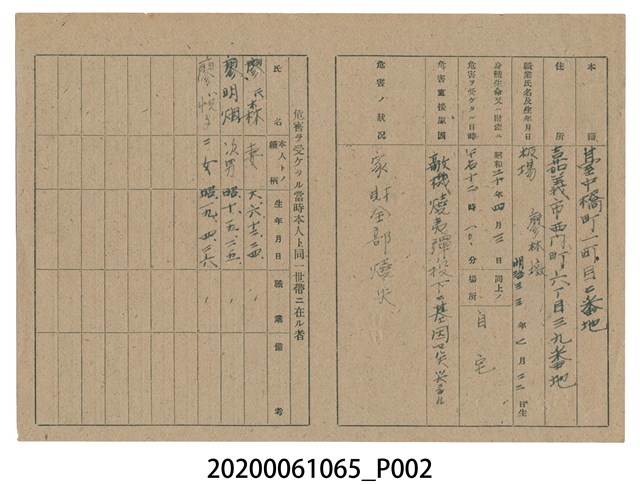 本籍 臺中橋町一町目二番地
住所 嘉義市西門町六丁目三九番地
職業氏名及生年月日 板場 廖林 明治三三年 月二二日生
身體生命又ハ財產ニ危害ヲ受ケタル日時 昭和二十年四月三日 十二時一〇分 同上ノ場所 自宅
危害直接原因 敵機燒夷彈投下ニ基因
危害ノ狀況 家財全部燒失
危害ヲ受ケタル當時本人ト同一世帶ニ在ル者
氏名 本人トノ續柄 生年月日 職業 備考
廖氏森 妻 大、六、十二、二四、
廖明烟 次男 昭、十五、二、五、
廖氏悅子 二女 昭、一九、四、二六
20200061065_P002